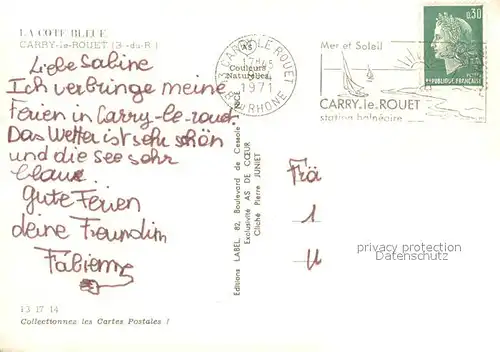 LA COTE BLEUE
CARRY-le-ROUET (B.-du-R.)
Liebe Sabine
Ich verbringe meine
Ferien in Carry-le-rouet.
Das Wetter ist sehr schön
und die See sehr
blaue.
Gute Ferien
deine Freundin
Fabienne
13 17 14
Collectionnez les Cartes Postales !
AS
Couleurs
Naturelles
Editions LABEL, 82, Boulevard de Cessole
Exclusivité AS DE CŒUR
Cliché Pierre JUNIET
13 CARRY-LE-ROUET
17H45
1971
RHONE
Mer et Soleil
CARRY.le.ROUET
station balnéaire
0,30
REPUBLIQUE FRANÇAISE
Frä
1
U
privacy protection
ansichtskartenversand.com